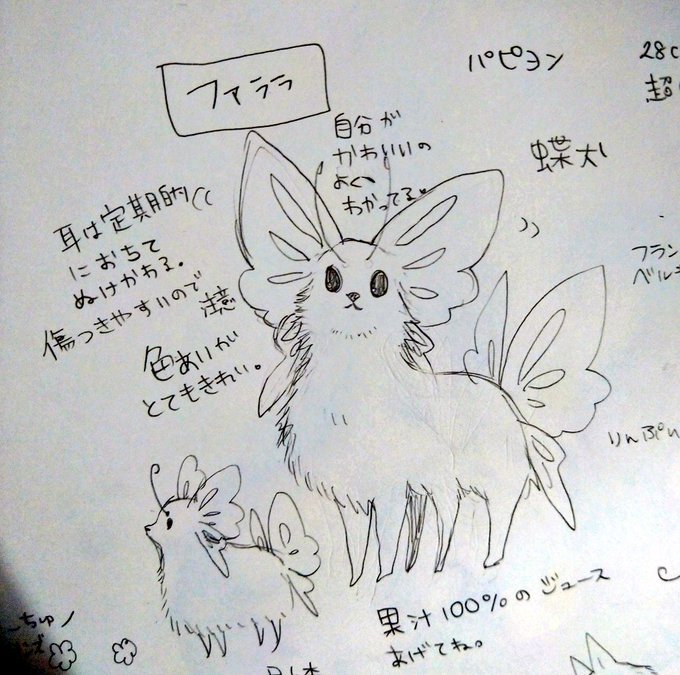 ファララ
パピヨン
28c
超
自分が
かわいいの
よく
わかってる。
蝶犬
耳は定期的
におちて
ぬけかわる。
傷つきやすいので
注意
色あいが
とてもきれい。
フラン
ベル
りんぷん
果汁100%のジュース
あげてね。